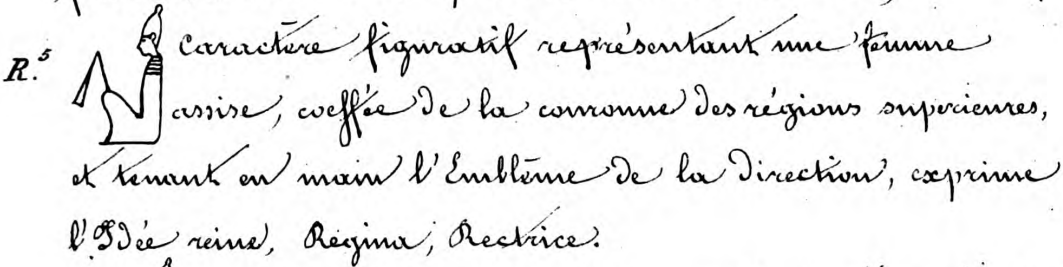 R.⁵ Caractère figuratif représentant une femme
assise, coeffée de la couronne des régions supérieures,
et tenant en main l'Emblême de la direction, exprime
l'Idée reine, Regina, Rectrice.